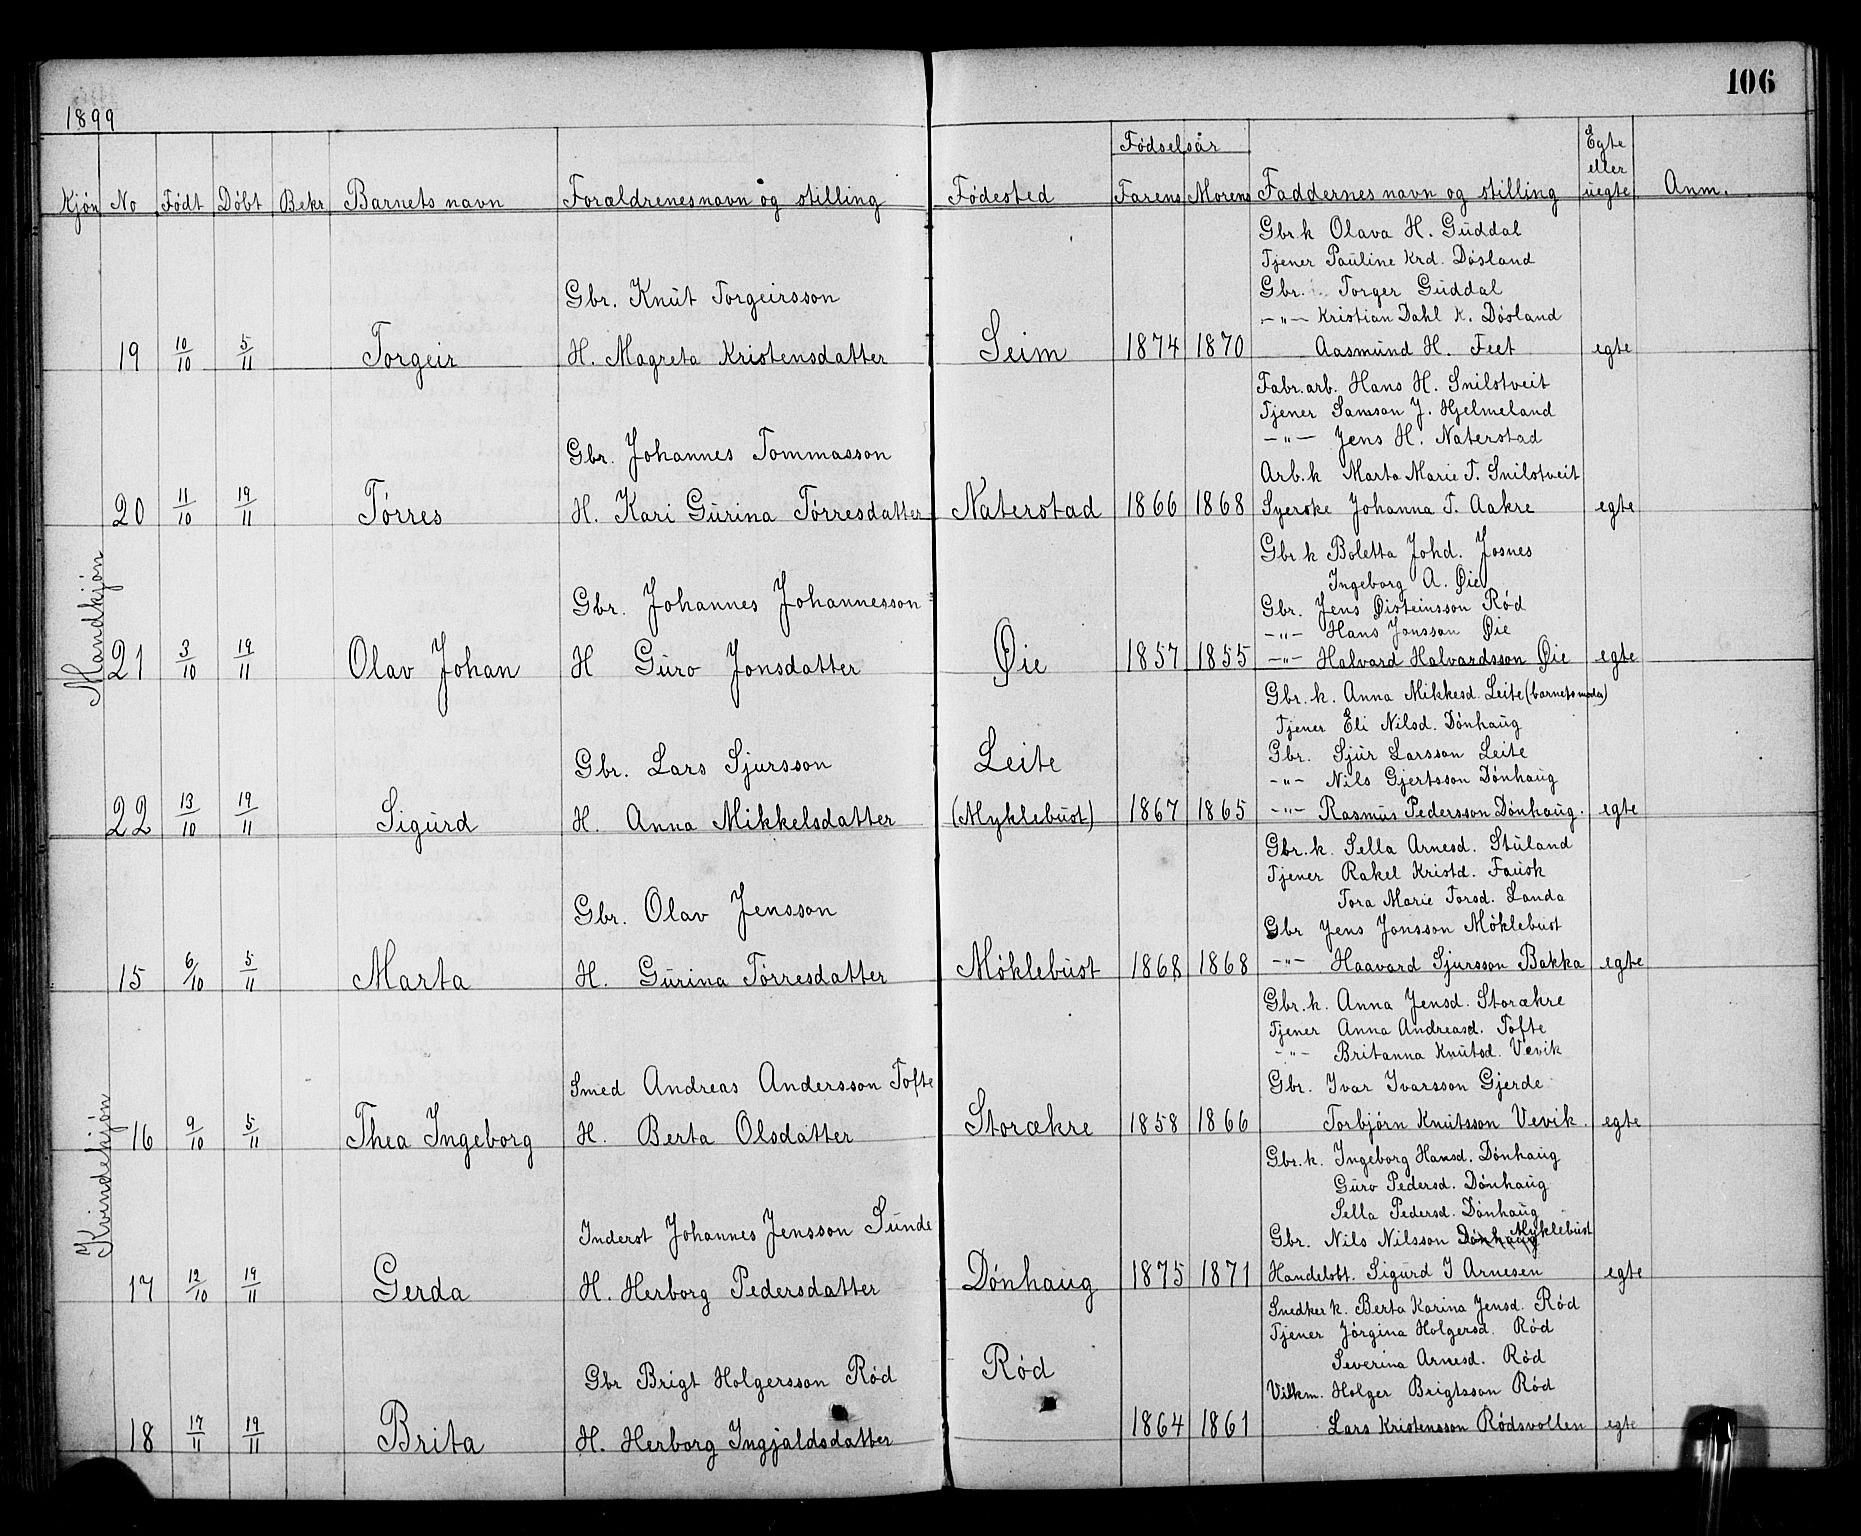 106
1899
Kjøn No Født Døbt Bekr Barnets navn Forældrenes navn og stilling Fødested Fødselsår Farens Morens Faddernes navn og stilling Egte eller uegte Anm.
Mandkjøn
Gbr. k Olava H. Guddal
Tjener Pauline Krd. Døsland
Gbr. Knut Torgeirsson Gbr. Torger Guddal
-„- Kristian Dahl K. Døsland
19 10/10 5/11 Torgeir H. Magreta Kristensdatter Seim 1874 1870 Aasmund H. Feet egte
Fabr. arb. Hans H. Snilstveit
Tjener Samson J. Hjelmeland
Gbr. Johannes Tommasson -„- Jens H. Naterstad
Arb. k Marta Marie T. Snilstveit
20 11/10 19/11 Tørres H. Kari Gurina Tørresdatter Naterstad 1866 1868 Syerske Johanna T. Aakre egte
Gbr k Boletta Johd. Josnes
Ingeborg A. Øie
Gbr. Johannes Johannesson Gbr. Jens Øisteinsson Rød
-„- Hans Jonsson Øie
21 3/10 19/11 Olav Johan H Guro Jonsdatter Øie 1857 1855 -„- Halvard Halvardsson Øie egte
Gbr. k. Anna Mikkesd. Leite (barnets moder)
Tjener Eli Nilsd. Dønhaug
Gbr. Lars Sjursson Leite Gbr. Sjur Larsson Leite
-„- Nils Gjertsson Dønhaug
22 13/10 19/11 Sigurd H. Anna Mikkelsdatter (Myklebust) 1867 1865 -„- Rasmus Pedersson Dønhaug. egte
Gbr. k. Sella Arnesd. Stuland
Tjener Rakel Kristd. Fausk
Tora Marie Torsd. Landa
Gbr. Olav Jensson Gbr Jens Jonsson Møklebust
15 6/10 5/11 Marta H. Gurina Tørresdatter Møklebust 1868 1868 -„- Haavard Sjursson Bakka egte
Kvindekjøn
Gbr. k. Anna Jensd. Storækre
Tjener Anna Andreasd. Tofte
-„- Britanna Knutsd. Vevik
Smed Andreas Andersson Tofte Gbr. Ivar Ivarsson Gjerde
16 9/10 5/11 Thea Ingeborg H. Berta Olsdatter Storækre 1858 1866 Torbjørn Knutsson Vevik egte
Gbr. k. Ingeborg Hansd. Dønhaug
Guro Pedersd. Dønhaug
Sella Pedersd. Dønhaug
Inderst Johannes Jensson Sunde Gbr. Nils Nilsson Dønhaug Myklebust
17 12/10 19/11 Gerda H. Herborg Pedersdatter Dønhaug 1875 1871 Handelsbt. Sigurd J Arnesen egte
Snedker k. Berta Karina Jensd. Rød
Tjener Jørgina Holgersd. Rød
Severina Arnesd. Rød
Gbr Brigt Holgersson Rød Rød Holger Brigtsson Rød
18 17/11 19/11 Brita H. Herborg Ingjaldsdatter 1864 1861 Lars Kristensson Rødsvollen egte